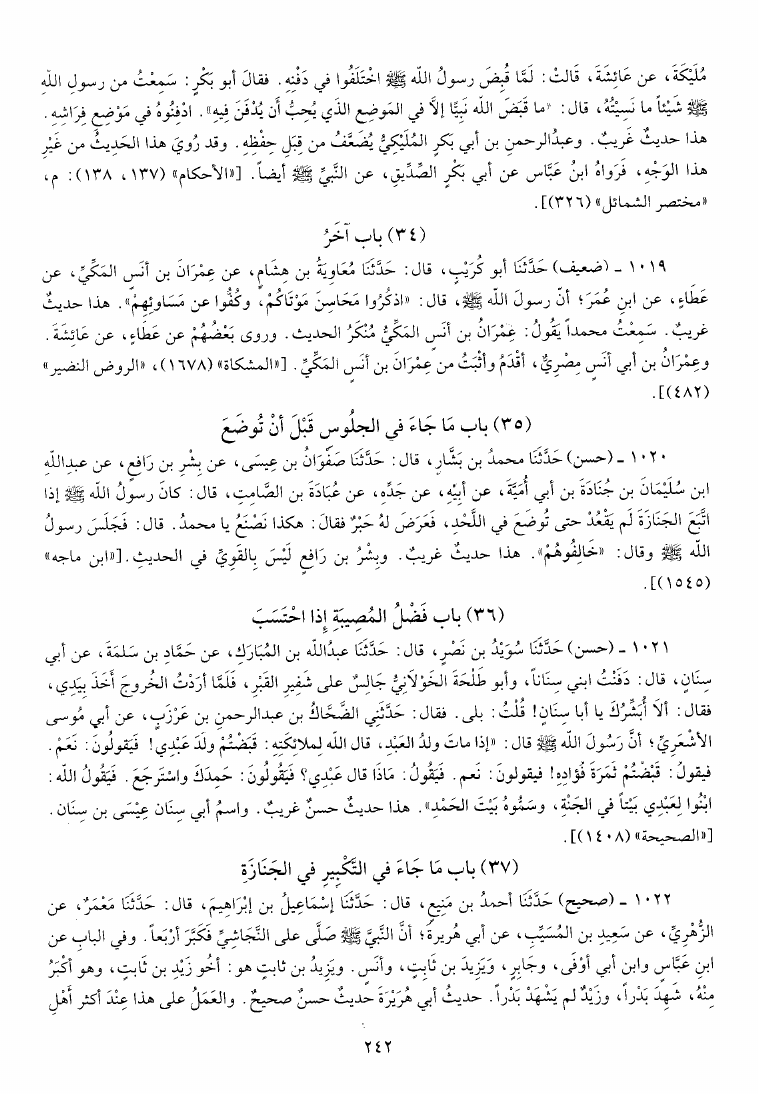 مُلَيْكَةَ، عن عَائِشَةَ، قَالتْ: لَمَّا قُبِضَ رسولُ الله ﷺ اخْتَلَفُوا في دَفْنِهِ. فقالَ أبو بَكْرٍ: سَمِعْتُ من رسولِ اللهِ
ﷺ شَيْئاً ما نَسِيْتُهُ، قال: «ما قَبَضَ الله نَبِيًّا إلَّا في المَوضِعِ الذي يُحِبُّ أَن يُدْفَنَ فِيهِ». ادْفِنُوهُ في مَوْضِعِ فِرَاشِهِ.
هذا حديثٌ غَرِيبٌ. وعبدُالرحمنِ بن أبي بَكرٍ المُلَيْكِيُّ يُضَعَّفُ من قِبَلِ حِفْظِهِ. وقد رُوِيَ هذا الحَدِيثُ من غَيْرِ
هذا الوَجْهِ، فَرَوَاهُ ابنُ عَبَّاس عن أبي بَكْرٍ الصِّدِّيقِ، عن النَّبيِّ ﷺ أيضاً. [«الأحكام» (١٣٧، ١٣٨): م،
«مختصر الشمائل» (٣٢٦)].
(٣٤) باب آخَرُ
١٠١٩ ـ (ضعيف) حَدَّثَنَا أبو كُرَيْبٍ، قال: حَدَّثَنَا مُعَاوِيَةُ بن هِشَامٍ، عن عِمْرَانَ بن أنَسٍ المَكِّيِّ، عن
عَطَاءٍ، عن ابنِ عُمَرَ؛ أنّ رسولَ الله ﷺ، قال: «اذكُرُوا مَحَاسِنَ مَوْتَاكُمْ، وكُفُّوا عن مَسَاوِئِهِمْ». هذا حديثٌ
غريبٌ. سَمِعْتُ محمداً يَقُولُ: عِمْرَانُ بن أنَسٍ المَكِّيُّ مُنْكَرُ الحديث. وروى بَعْضُهُمْ عن عَطَاءٍ، عن عَائِشَةَ.
وعِمْرَانُ بن أبي أنَسٍ مِصْرِيٌّ، أقْدَمُ وأثْبَتُ من عِمْرَانَ بن أنَسٍ المَكِّيِّ. [«المشكاة» (١٦٧٨)، «الروض النضير»
(٤٨٢)].
(٣٥) باب مَا جَاءَ في الجلُوسِ قَبْلَ أنْ تُوضَعَ
١٠٢٠ ـ (حسن) حَدَّثَنَا محمدُ بن بَشَّارٍ، قال: حَدَّثَنَا صَفْوَانُ بن عِيسَى، عن بِشْرِ بن رَافِعٍ، عن عبدِاللهِ
ابن سُلَيْمَانَ بن جُنَادَةَ بن أبي أُمَيَّةَ، عن أبِيْهِ، عن جَدِّهِ، عن عُبَادَةَ بن الصَّامِتِ، قال: كانَ رسولُ الله ﷺ إذا
اتَّبَعَ الجَنَازَةَ لم يَقْعُدْ حتى تُوضَعَ في اللَّحْدِ، فَعَرَضَ لهُ حَبْرٌ فقالَ: هكذا نَصْنَعُ يا محمدُ. قال: فَجَلَسَ رسولُ
الله ﷺ وقال: «خَالِفُوهُمْ». هذا حديثٌ غريبٌ. وبِشْرُ بن رَافِعٍ لَيْسَ بِالقَوِيِّ في الحديثِ. [«ابن ماجه»
(١٥٤٥)].
(٣٦) باب فَضْلُ المُصِيبَةِ إِذا احْتَسَبَ
١٠٢١ ـ (حسن) حَدَّثَنَا سُوَيْدُ بن نَصْرٍ، قال: حَدَّثَنَا عبدُالله بن المُبَارَكِ، عن حَمَّادِ بن سَلَمَةَ، عن أبي
سِنَانٍ، قال: دَفَنْتُ ابني سِنَاناً، وأبو طَلْحَةَ الخَوْلَانِيُّ جَالِسٌ على شَفِيرِ القَبْرِ، فَلَمَّا أرَدْتُ الخُروجَ أخَذَ بِيَدِي،
فقال: ألَا أُبَشِّرُكَ يا أبا سِنَانٍ! قُلْتُ: بلى. فقال: حَدَّثَنِي الضَّحَّاكُ بن عبدالرحمنِ بن عَرْزَبٍ، عن أبي مُوسى
الأشْعَرِيِّ؛ أنَّ رَسُولَ الله ﷺ قال: «إذا ماتَ ولدُ العَبْدِ، قال الله لِملائكَتِهِ: قَبَضْتُمْ ولَدَ عَبْدِي! فَيَقولُونَ: نَعَمْ.
فيقولُ: قَبْضْتُمْ ثَمَرَةَ فُؤَادِهِ! فيقولونَ: نَعم. فيَقُولُ: مَاذَا قال عَبْدِي؟ فَيَقُولُونَ: حَمِدَكَ واسْتَرجَعَ. فَيَقُولُ الله:
ابْنُوا لِعَبْدِي بَيْتاً في الجَنَّةِ، وسَمُّوهُ بَيْتَ الحَمْدِ». هذا حديثٌ حسنٌ غريبٌ. واسمُ أبي سِنَان عِيْسَى بن سِنَان.
[«الصحيحة» (١٤٠٨)].
(٣٧) باب مَا جَاءَ في التَّكْبِيرِ في الجَنَازَةِ
١٠٢٢ ـ (صحيح) حَدَّثَنَا أحمدُ بن مَنِيعٍ، قال: حَدَّثَنَا إسْمَاعِيلُ بن إبْرَاهِيمَ، قال: حَدَّثَنَا مَعْمَرٌ، عن
الزُّهْرِيِّ، عن سَعِيدِ بن المُسَيِّبِ، عن أبي هُريرةَ؛ أنَّ النَّبيَّ ﷺ صَلَّى على النَّجَاشِيِّ فَكَبَّرَ أرْبَعاً. وفي البابِ عن
ابنِ عَبَّاسٍ وابن أبي أوْفَى، وجَابِرٍ، ويَزِيدَ بن ثَابِتٍ، وأنَسٍ. ويَزِيدُ بن ثابتٍ هو: أخُو زَيْدِ بن ثَابتٍ، وهو أكْبَرُ
مِنْهُ، شَهِدَ بَدْراً، وزَيْدٌ لم يَشْهَدْ بَدْراً. حديثُ أبي هُرَيْرَةَ حديثٌ حسنٌ صحيحٌ. والعَمَلُ على هذا عِنْدَ أكثر أهْلِ
٢٤٢